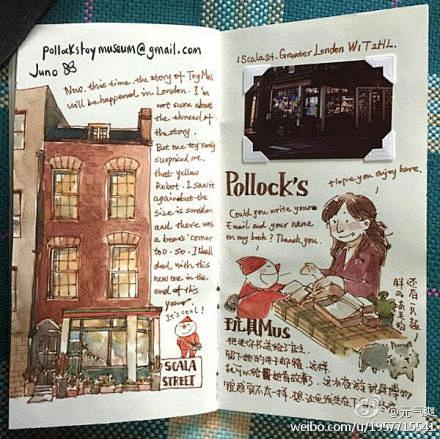 pollockstoymuseum@gmail.com
Juno
Now, this time, the story of Toy Mus
will be happened in London. I'm
not sure about
the thread of
the story.
But one toy really
surprised me.
that yellow
Robot. I saw it
again but the
size is smaller
and there was
a bears' corner
too. so. I shall
deal with this
new one in the
end of this
year.
It's cool!
SCALA
STREET
1 Scala St. Greater London W1T 2HL.
Pollock's
I hope you enjoy here.
Could you write your
Email and your name
on my book? Thank you.
还有一只超
胖的
玩具Mus
把
留下她的电子邮箱,这样
我可以给她看故事了,这
感觉很不一样,
@元气爽
weibo.com/u/1957715541